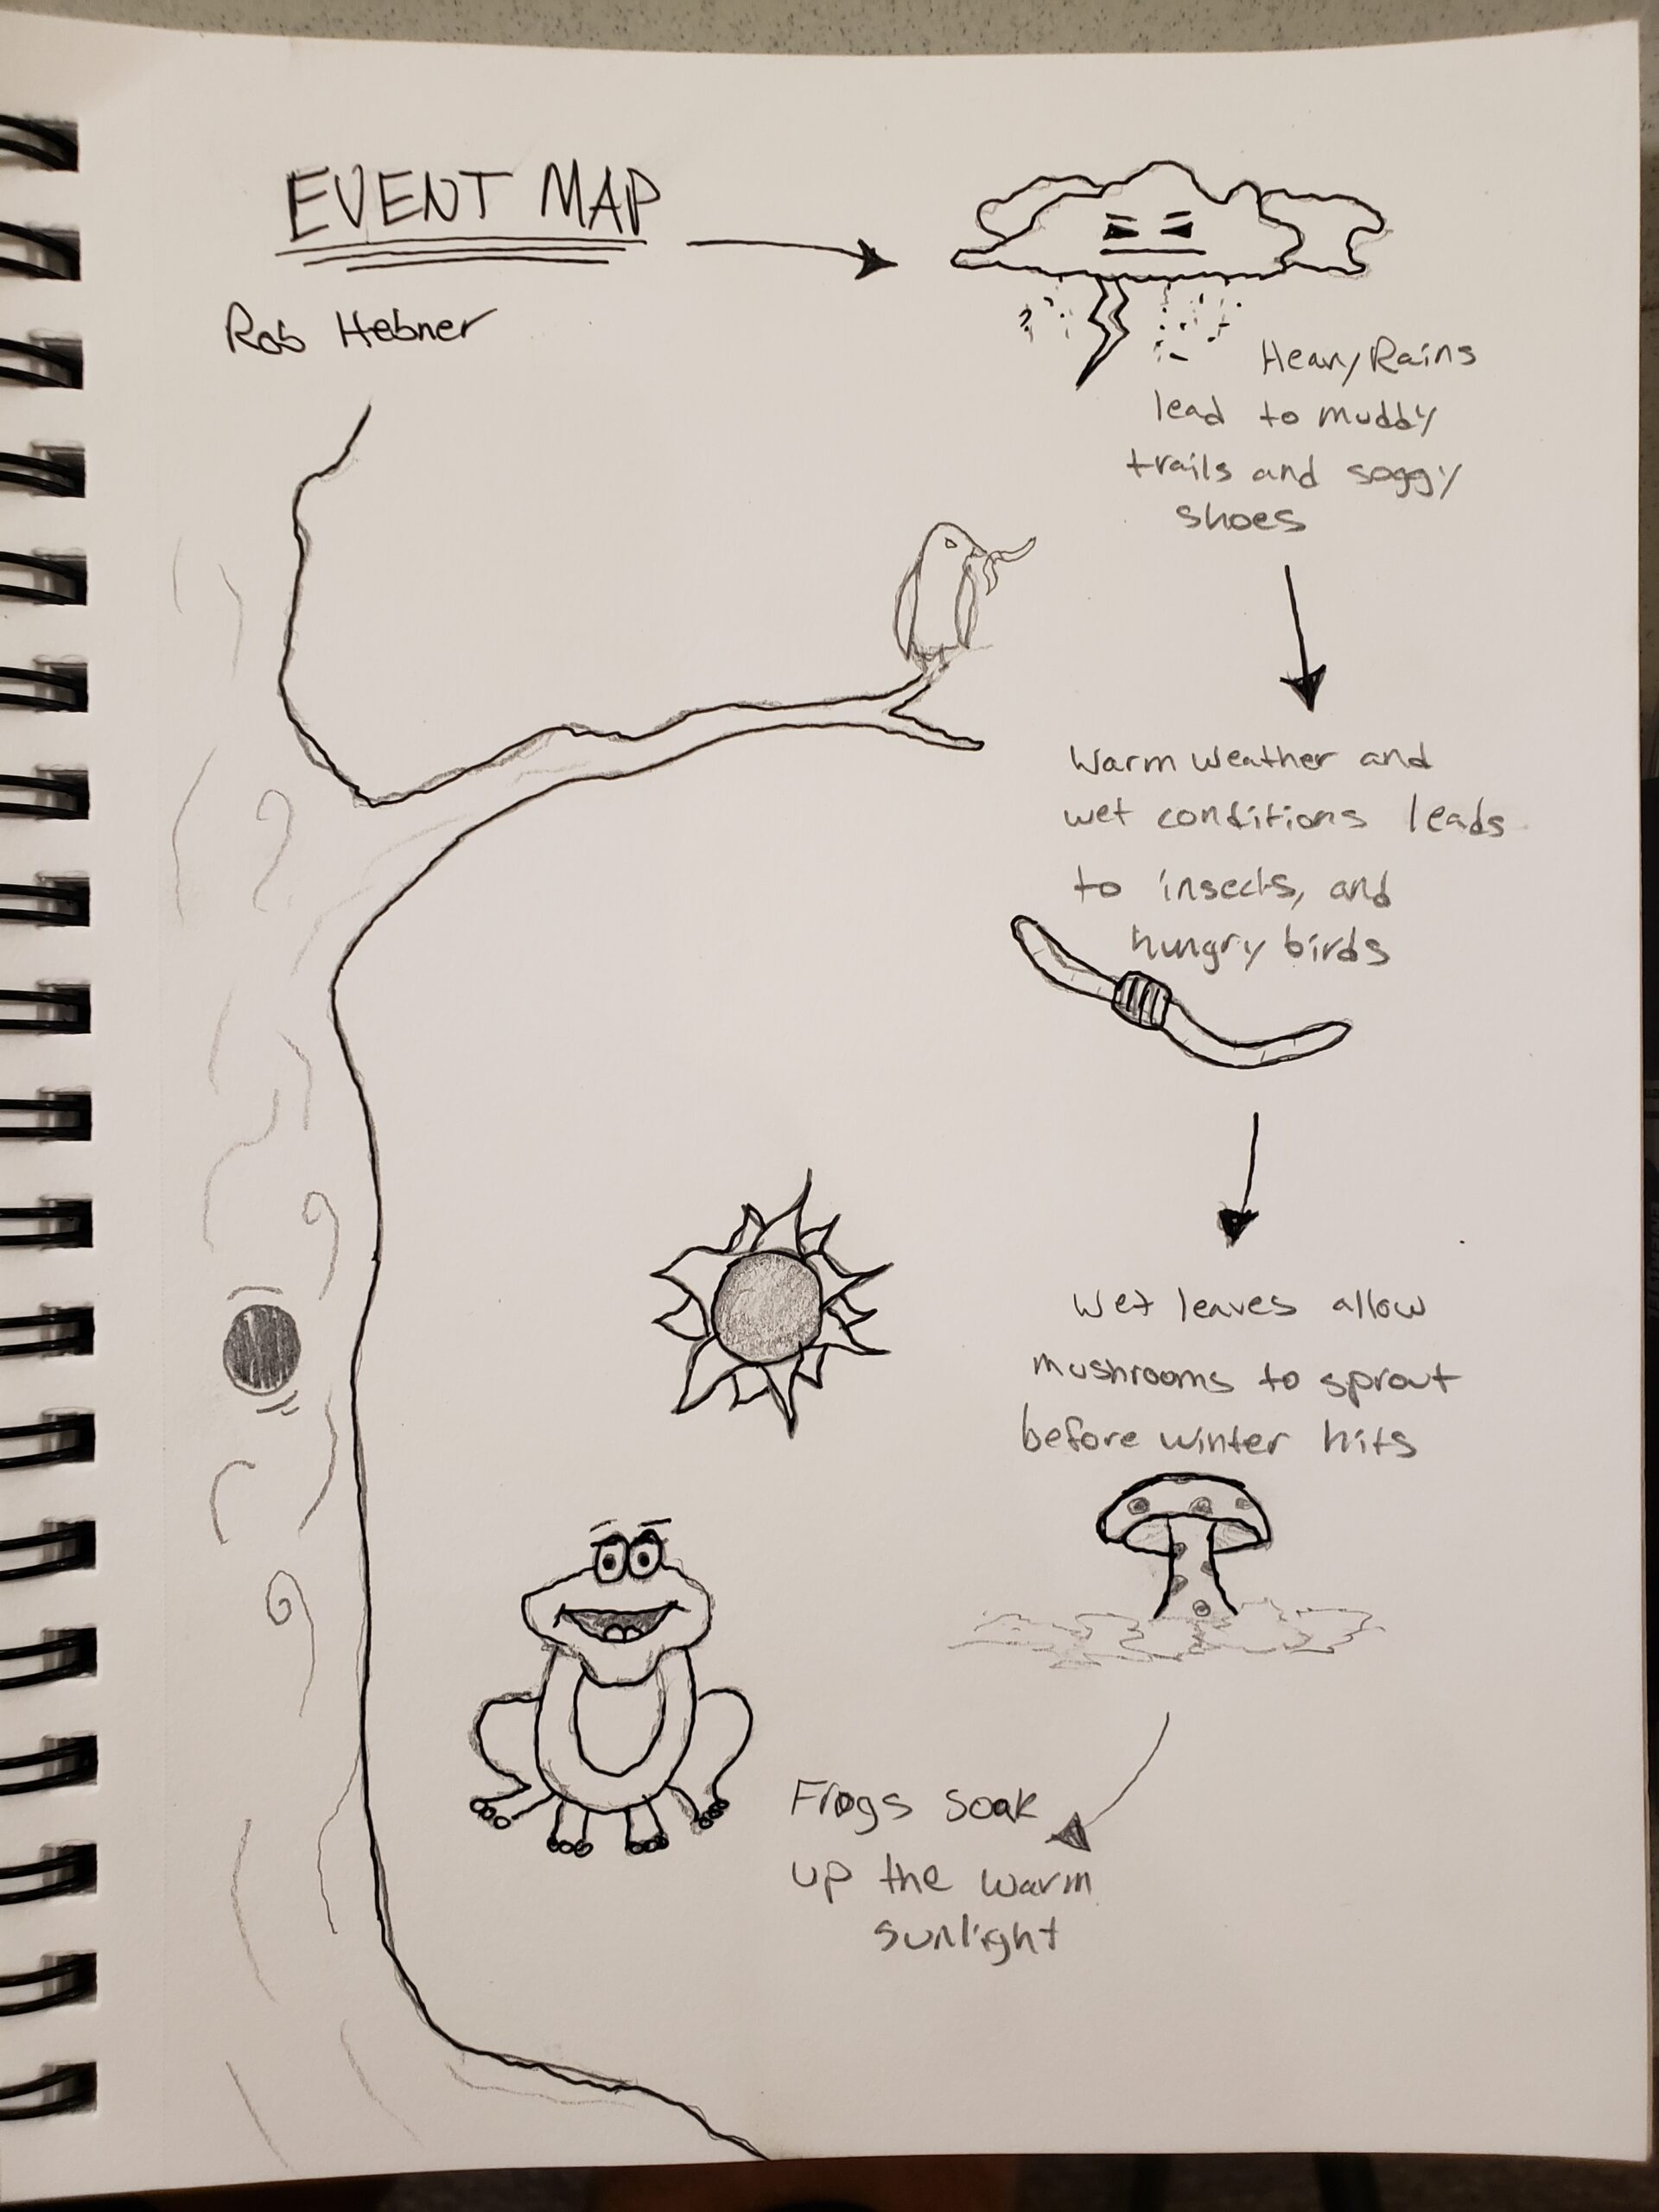 EVENT MAP
Rob Hebner
Heavy Rains
lead to muddy
trails and soggy
shoes
Warm weather and
wet conditions leads
to insects, and
hungry birds
Wet leaves allow
mushrooms to sprout
before winter hits
Frogs soak
up the warm
sunlight